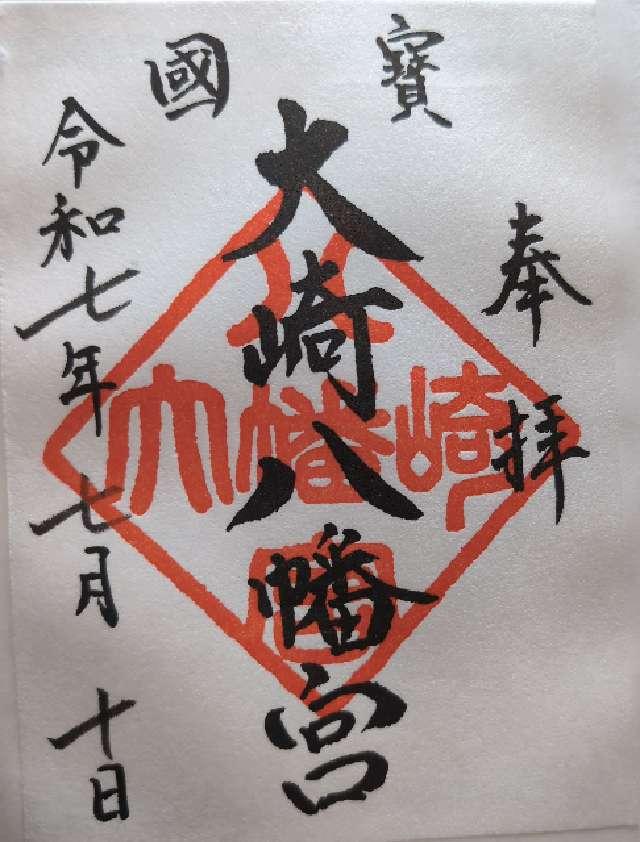 奉拝
寶國
大崎八幡宮
令和七年七月十日
大崎八幡宮